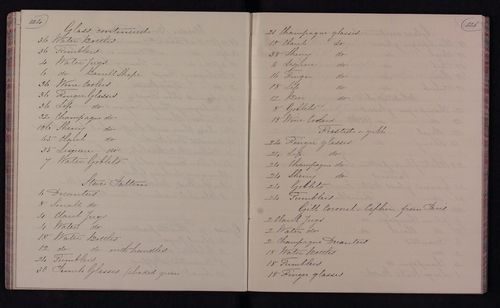 224
Glass continued
36 Water Bottles
36 Tumblers
4 Water Jugs
6 do Barrell Shape
36 Wine Coolers
36 Finger Glasses
36 Lip do
32 Champagne do
106 Sherry do
45 Claret do
35 Liqueur do
7 Water Goblets
Star Pattern
4 Decanters
8 Small do
4 Claret Jugs
4 Water do
18 Water Bottles
12 do do with handles
24 Tumblers
30 Glasses green
225
Champagne glasses
18 Claret do
38 Sherry do
6 Liqueur do
16 Finger do
18 Lip do
12 do
8 Goblets
18 Wine Coolers
Frosted & gilt
24 Finger glasses
24 Lip do
24 Champagne do
24 Sherry do
24 Goblets
24 Tumblers
Gilt Coronet & from Paris
2 Claret Jugs
2 Water do
2 Champagne Decanters
18 Water Bottles
18 Tumblers
18 Finger glasses